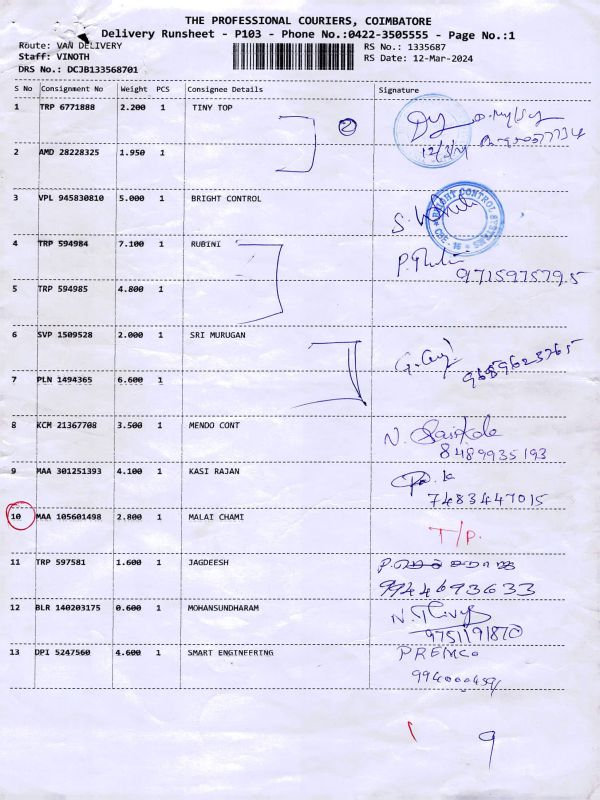 THE PROFESSIONAL COURIERS, COIMBATORE
Delivery Runsheet - P103 - Phone No.:0422-3505555 - Page No.:1
Route: VAN DELIVERY RS No.: 1335687
Staff: VINOTH RS Date: 12-Mar-2024
DRS No.: DCJB133568701
S No Consignment No Weight PCS Consignee Details Signature
1 TRP 6771888 2.200 1 TINY TOP
2
12/3/24
2 AMD 28228325 1.950 1
3 VPL 945830810 5.000 1 BRIGHT CONTROL
BRIGHT CONTROL
CBE - 16
4 TRP 594984 7.100 1 RUBINI
9715975795
5 TRP 594985 4.800 1
6 SVP 1509528 2.000 1 SRI MURUGAN
9689623265
7 PLN 1494365 6.600 1
8 KCM 21367708 3.500 1 MENDO CONT
8489935193
9 MAA 301251393 4.100 1 KASI RAJAN
7483447015
10 MAA 105601498 2.800 1 MALAI CHAMI T/P.
11 TRP 597581 1.600 1 JAGDEESH
9944693633
12 BLR 140203175 0.600 1 MOHANSUNDHARAM
9751191870
13 DPI 5247560 4.600 1 SMART ENGINEERING PREMCO
9